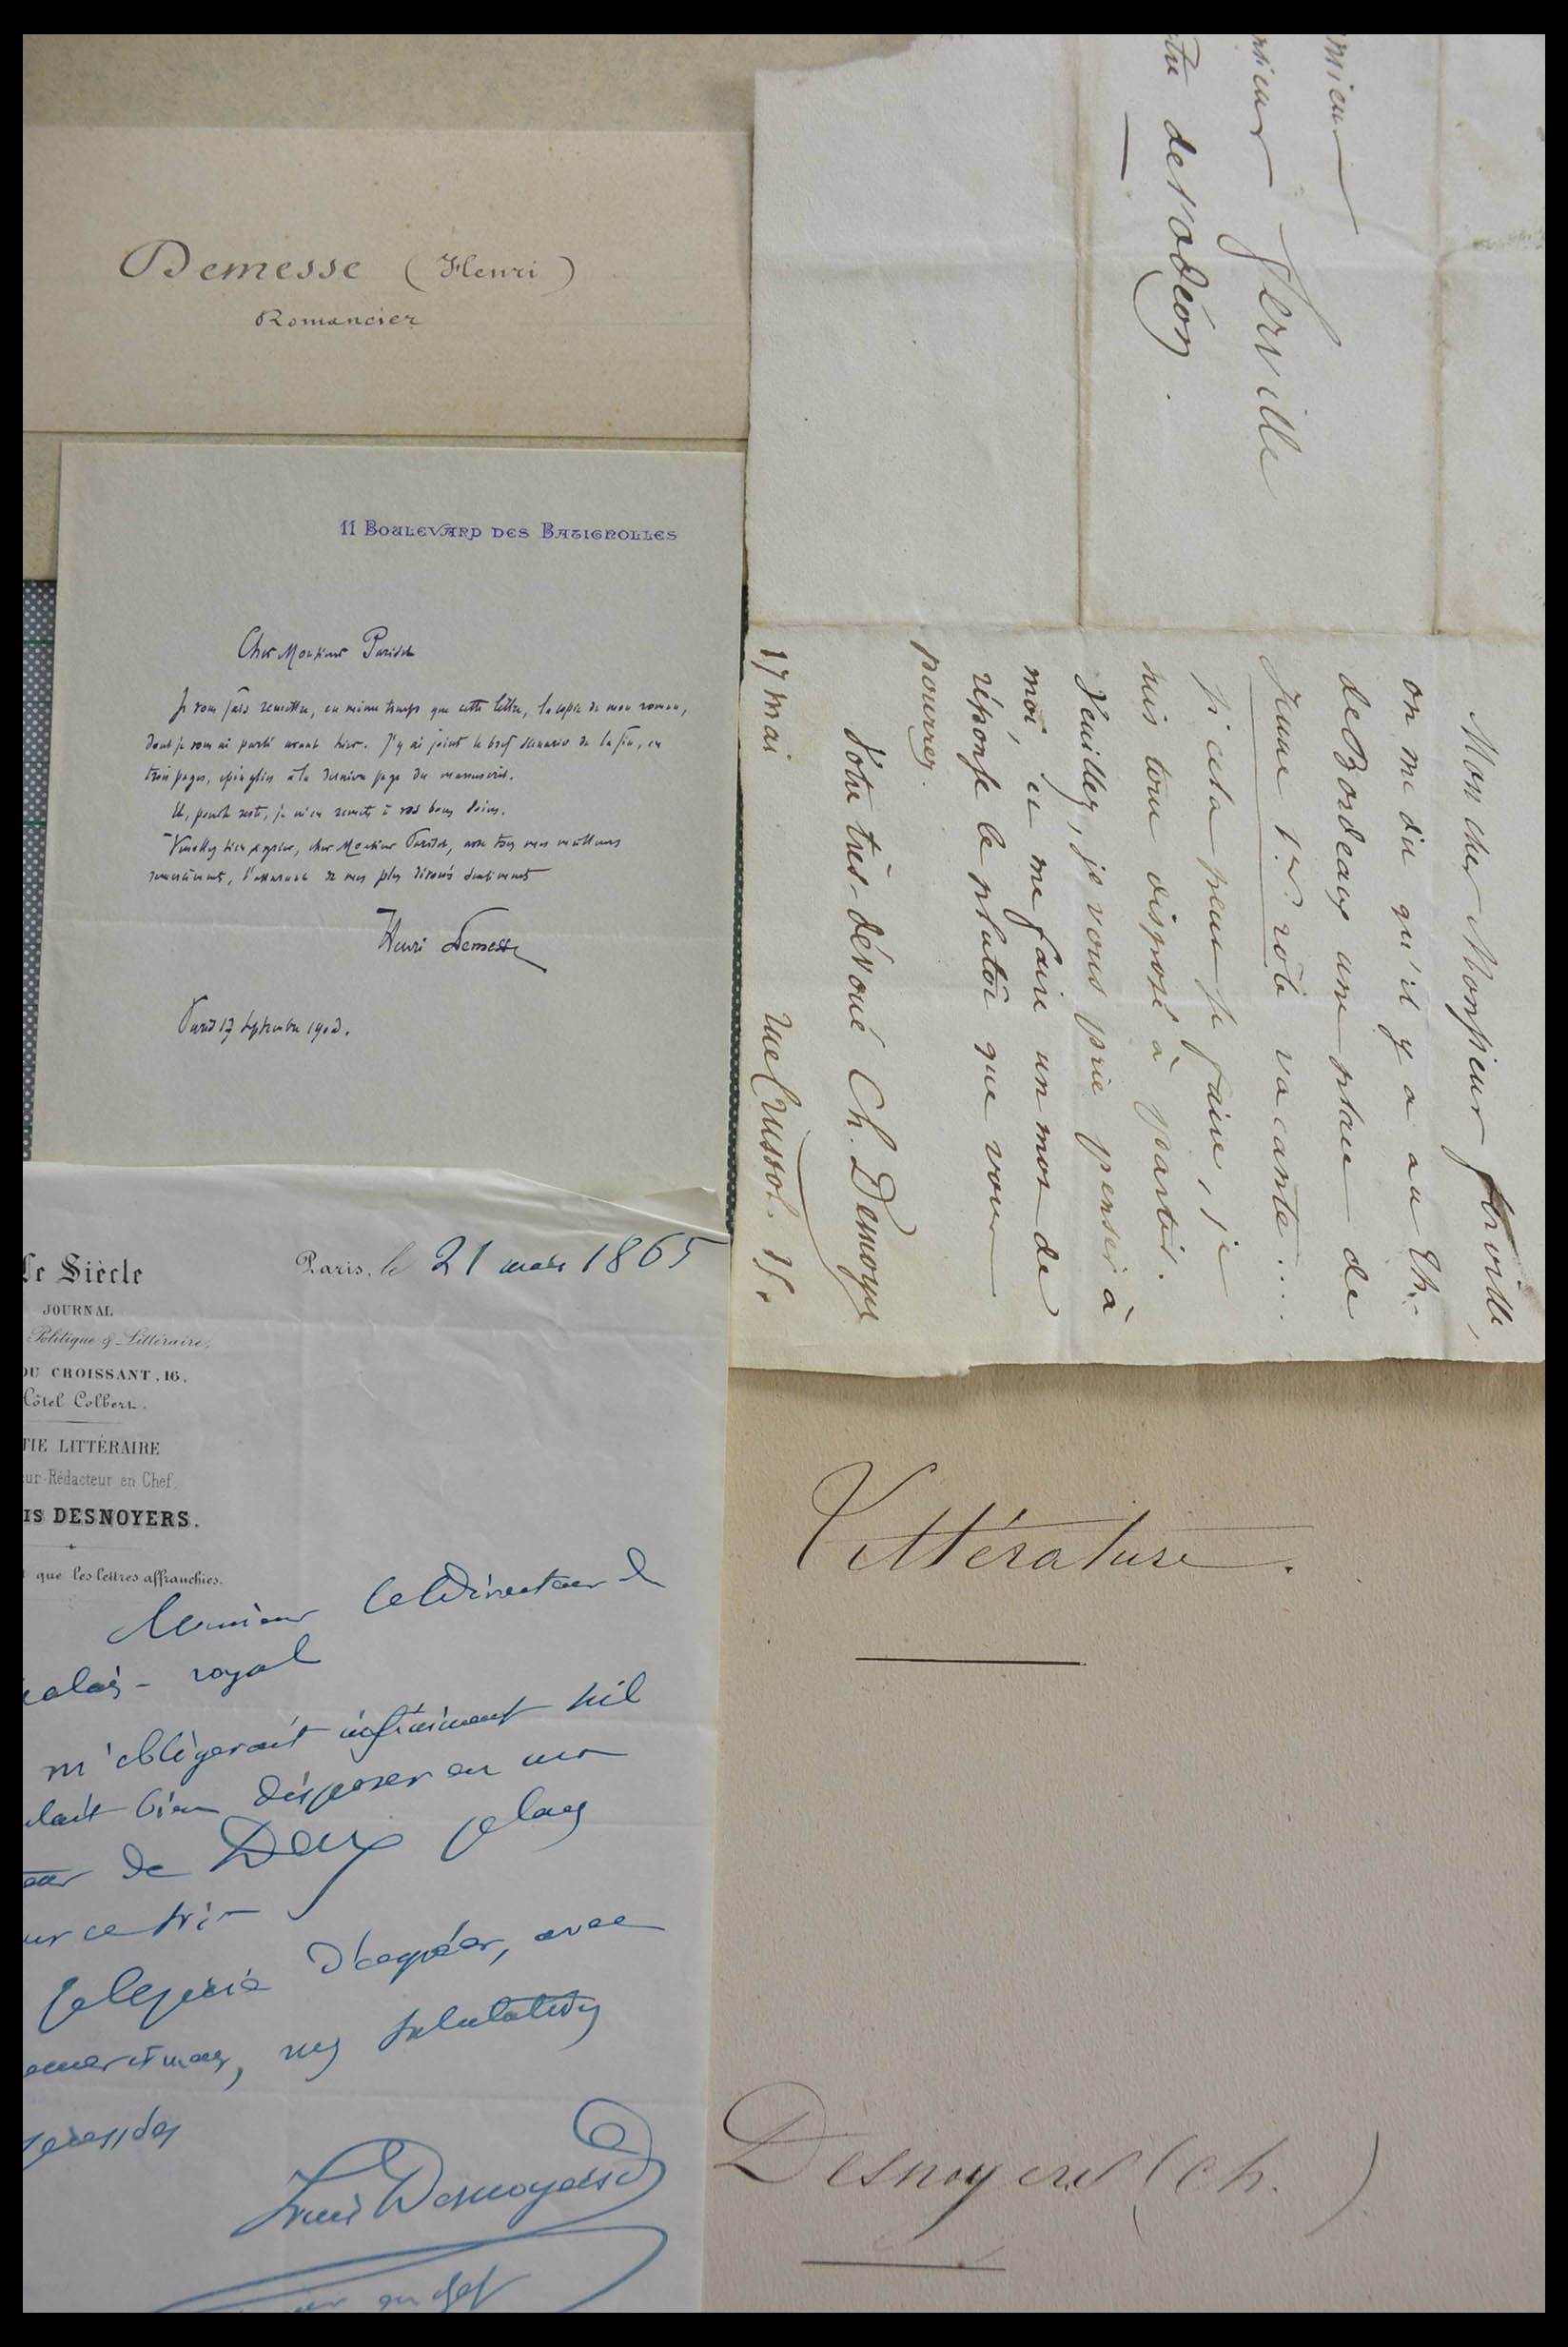 Demesse (Henri)
Romancier
11 BOULEVARD DES BATIGNOLLES
Cher Monsieur
Je vous fais remettre, en même temps que cette lettre, la copie de mon roman,
dont je vous ai parlé avant hier. J'y ai joint le bref scénario de la fin, en
trois pages, épinglées à la dernière page du manuscrit.
Et, pour le reste, je m'en remets à vos bons soins.
Veuillez bien agréer, cher Monsieur avec tous mes meilleurs
sentiments, l'assurance de mes plus dévoués sentiments
Henri Demesse
Paris 17 septembre
Monsieur
Monsieur Ferville
de l'odéon.
Mon cher Monsieur ferville,
on me dit qu'il y a au th.
de Bordeaux une place de
Jeune 1er. rôle vacante....
si cela peut se faire, je
suis tout disposé à partir.
Veuillez, je vous prie penser à
moi, et me faire un mot de
réponse le plutôt que vous
pourrez.
Votre très-dévoué Ch. Desnoyers
17 mai rue Crussol. 15.
Le Siècle
JOURNAL
Politique & Littéraire,
DU CROISSANT, 16,
Hôtel Colbert.
TIE LITTÉRAIRE
ur-Rédacteur en Chef
IS DESNOYERS.
que les lettres affranchies.
Paris, le 21 mars 1865
Monsieur le Directeur du
palais-royal
m'obligerait infiniment s'il
lait bien disposer en ma
de Deux places
ur ce soir
je le prie d'agréer, avec
mes salutations
empressées
Louis Desnoyers
en chef
Littérature.
Desnoyers (Ch.)